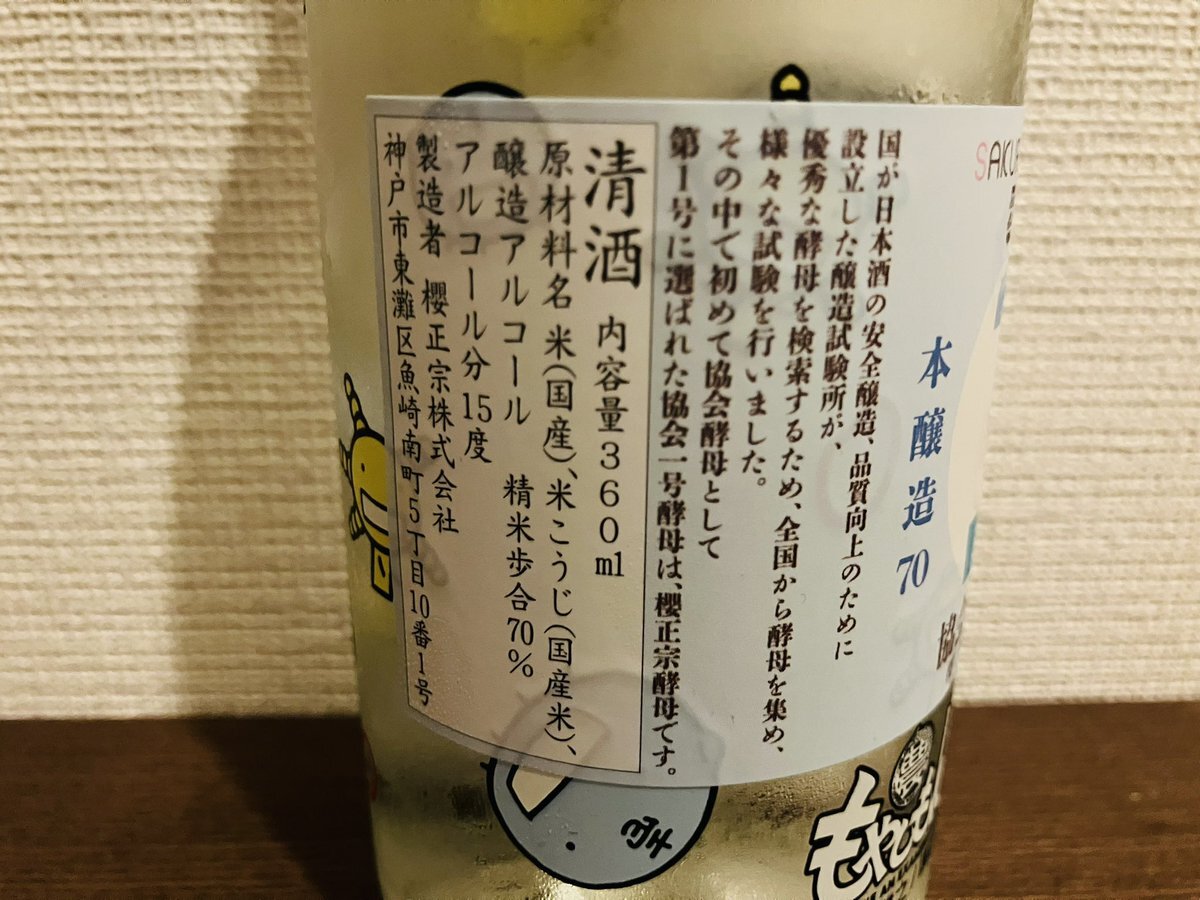 本醸造70
国が日本酒の安全醸造、品質向上のために
設立した醸造試験所が、
優秀な酵母を検索するため、全国から酵母を集め、
様々な試験を行いました。
その中で初めて協会酵母として
第1号に選ばれた協会一号酵母は、櫻正宗酵母です。
清酒 内容量360ml
原材料名 米(国産)、米こうじ(国産米)、
醸造アルコール 精米歩合70%
アルコール分15度
製造者 櫻正宗株式会社
神戸市東灘区魚崎南町5丁目10番1号
SAKUR
協
もやしも